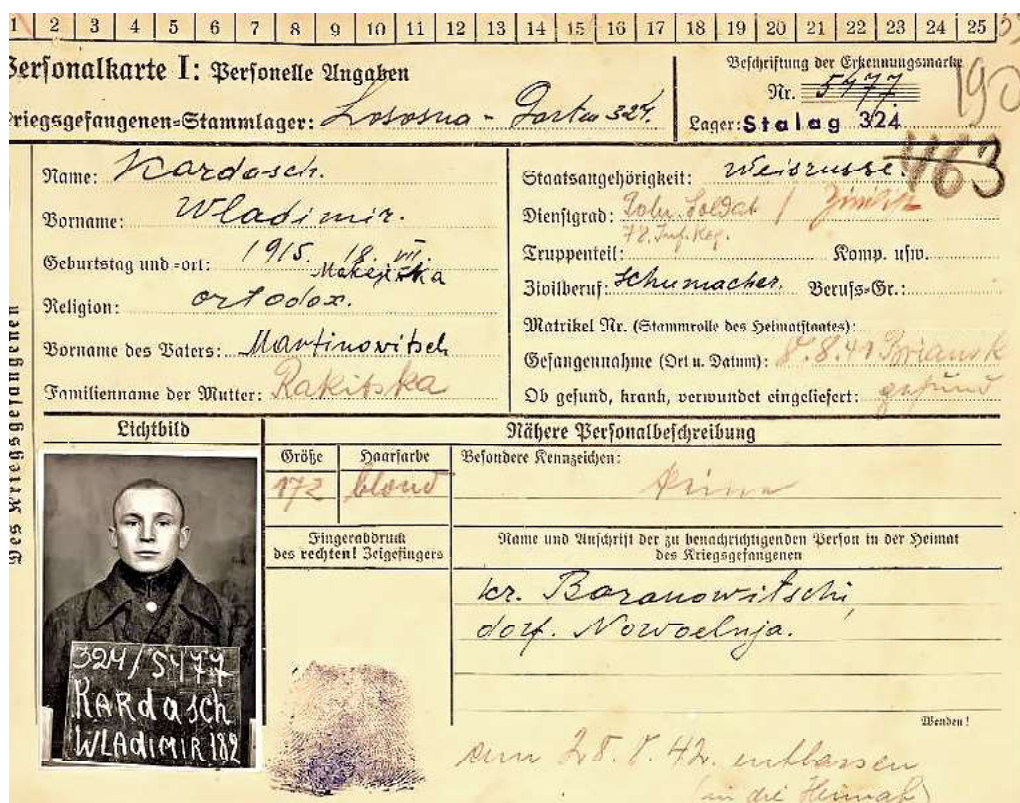 1 2 3 4 5 6 7 8 9 10 11 12 13 14 15 16 17 18 19 20 21 22 23 24 25
Personalkarte I: Personelle Angaben
Kriegsgefangenen=Stammlager: Lososna - 324.
Beschriftung der Erkennungsmarke
Nr. 5477.
Lager: Stalag 324
190
463
Des Kriegsgefangenen
Name: Kardasch.
Vorname: Wladimir.
Geburtstag und =ort: 1915. 18. VII.
Religion: ortodox.
Vorname des Vaters: Martinowitsch
Familienname der Mutter: Rakitska
Staatsangehörigkeit: Weisrusse.
Dienstgrad: Soldat /
72. Inf. Reg.
Truppenteil: Komp. usw.
Zivilberuf: Schumacher. Berufs=Gr.:
Matrikel Nr. (Stammrolle des Heimatstaates):
Gefangennahme (Ort u. Datum): 8.8.41 Briansk
Ob gesund, krank, verwundet eingeliefert: gesund
Lichtbild
Nähere Personalbeschreibung
Größe Haarfarbe Besondere Kennzeichen:
172 blond keine
Fingerabdruck
des rechten! Zeigefingers
Name und Anschrift der zu benachrichtigenden Person in der Heimat
des Kriegsgefangenen
kr. Baranowitschi,
dorf. Nowoelnja.
Wenden!
324/5477
KARdaSCh
WLAdiMiR 182
am 28.8.42. entlassen
(in die Heimat)